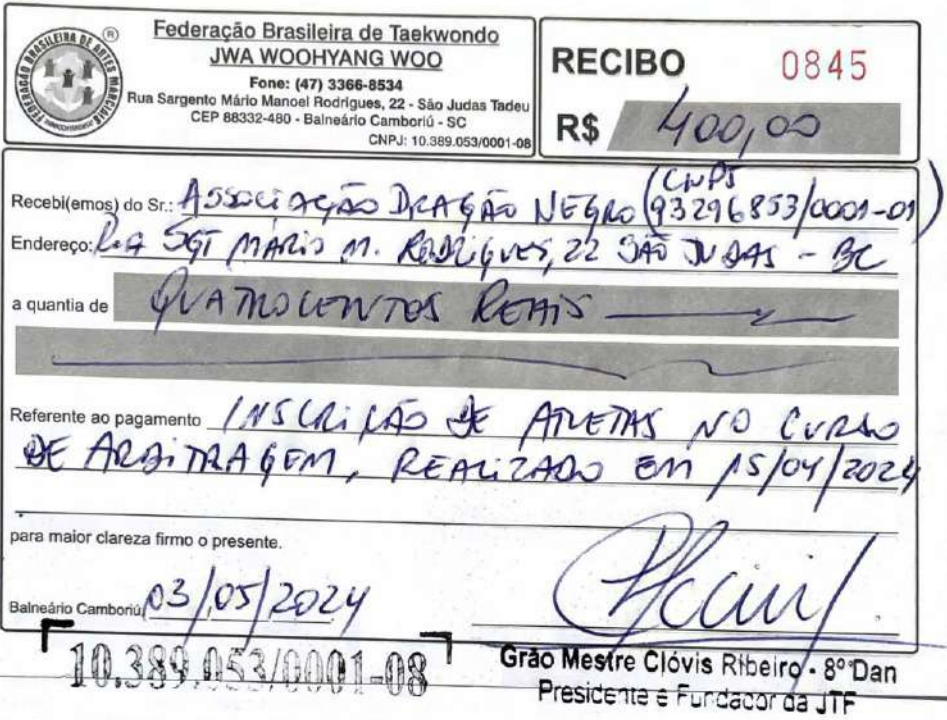 FEDERAÇÃO BRASILEIRA DE ARTES MARCIAIS
®
Federação Brasileira de Taekwondo
JWA WOOHYANG WOO
Fone: (47) 3366-8534
Rua Sargento Mário Manoel Rodrigues, 22 - São Judas Tadeu
CEP 88332-480 - Balneário Camboriú - SC
CNPJ: 10.389.053/0001-08
RECIBO 0845
R$ 400,00
(CNPJ
Recebi(emos) do Sr.: ASSOCIAÇÃO DRAGÃO NEGRO 93296853/0001-01)
Endereço: RUA SGT MÁRIO M. RODRIGUES, 22 SÃO JUDAS - BC
a quantia de QUATROCENTOS REAIS
Referente ao pagamento INSCRIÇÃO DE ATLETAS NO CURSO
DE ARBITRAGEM, REALIZADO EM 15/04/2024
para maior clareza firmo o presente.
Balneário Camboriú, 03/05/2024
10.389.053/0001-08
Grão Mestre Clóvis Ribeiro - 8º Dan
Presidente e Fundador da JTF